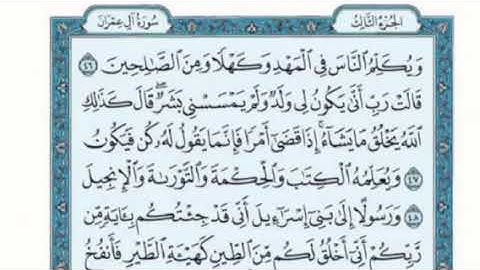 الجزء الثالث
سورة آل عمران
وَيُكَلِّمُ ٱلنَّاسَ فِي ٱلْمَهْدِ وَكَهْلًا وَمِنَ ٱلصَّٰلِحِينَ ٤٦
قَالَتْ رَبِّ أَنَّىٰ يَكُونُ لِي وَلَدٌ وَلَمْ يَمْسَسْنِي بَشَرٌ ۖ قَالَ كَذَٰلِكِ
ٱللَّهُ يَخْلُقُ مَا يَشَآءُ ۚ إِذَا قَضَىٰٓ أَمْرًا فَإِنَّمَا يَقُولُ لَهُۥ كُن فَيَكُونُ
٤٧ وَيُعَلِّمُهُ ٱلْكِتَٰبَ وَٱلْحِكْمَةَ وَٱلتَّوْرَىٰةَ وَٱلْإِنجِيلَ
٤٨ وَرَسُولًا إِلَىٰ بَنِيٓ إِسْرَٰٓءِيلَ أَنِّي قَدْ جِئْتُكُم بِـَٔايَةٍ مِّن
رَّبِّكُمْ أَنِّيٓ أَخْلُقُ لَكُم مِّنَ ٱلطِّينِ كَهَيْـَٔةِ ٱلطَّيْرِ فَأَنفُخُ